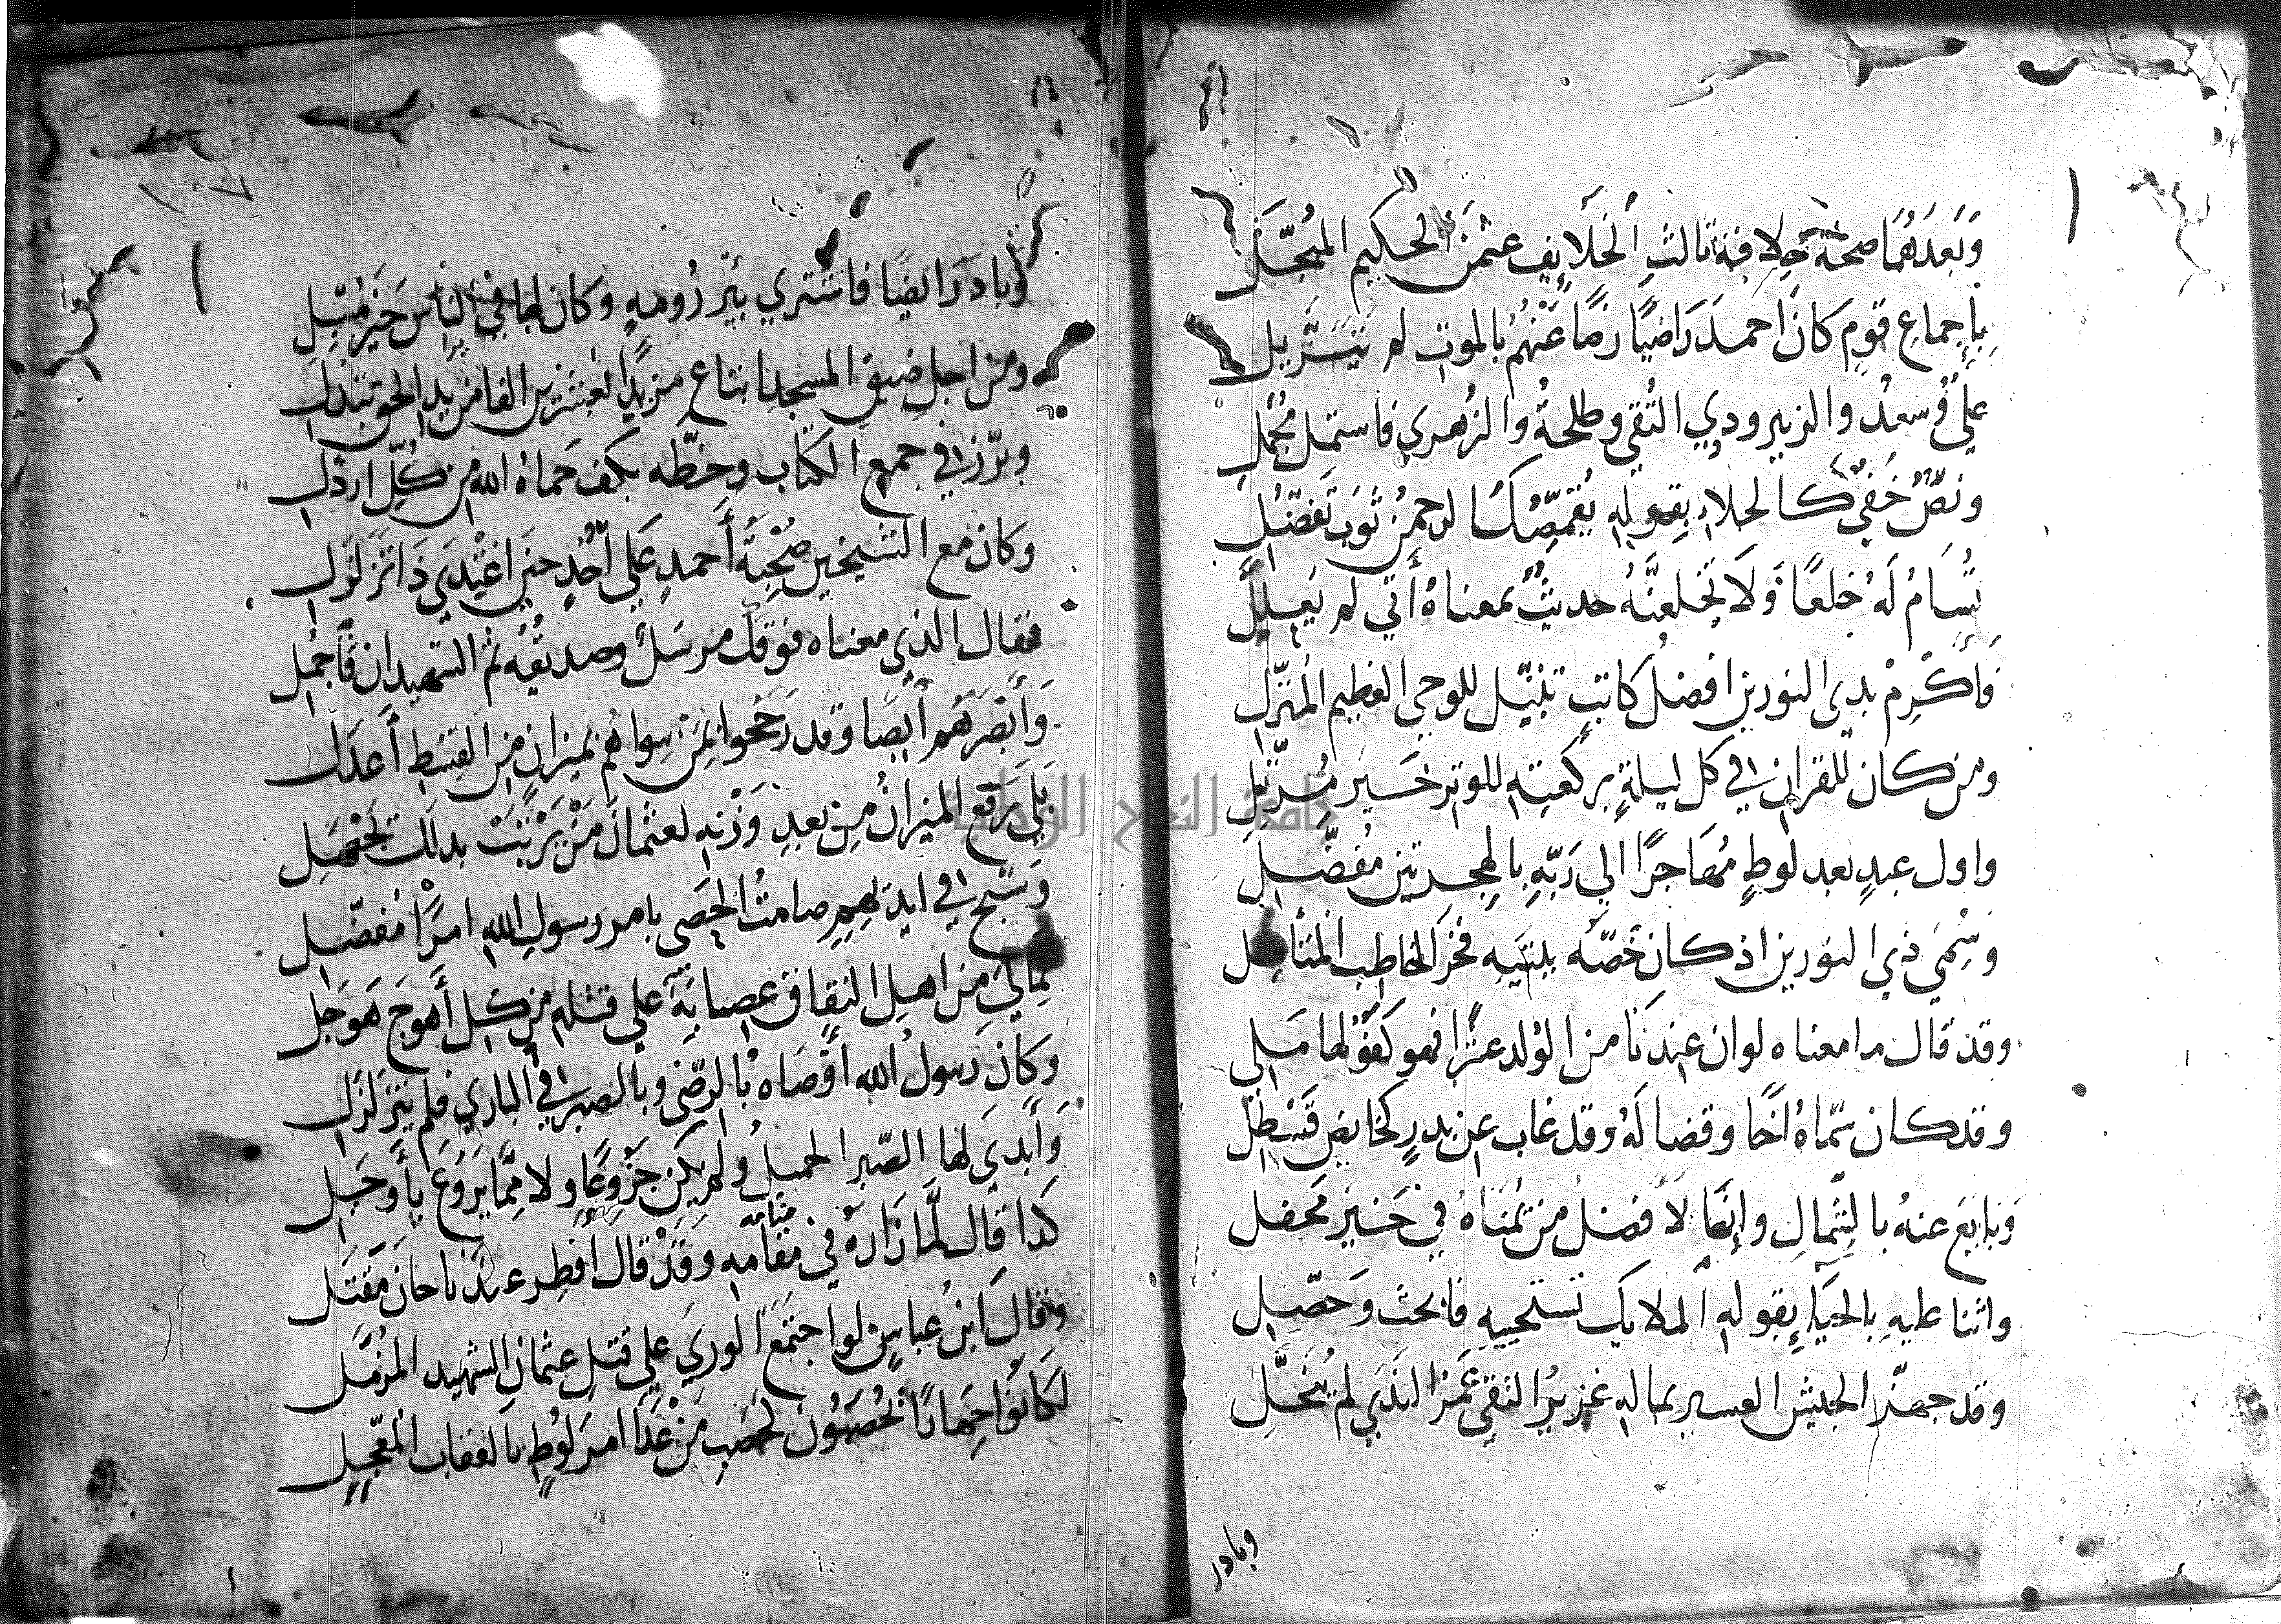 وَبَعْدَهُمَا صحة خلافة ثالث الخَلَايِف عثمن الحكيم المُبَجَّلِ
بإجماع قوم كان احمد راضيًا زمًا عنهُم بالموت لم يتزيل
علي وسعد والزبير وذي التقي وطلحة والزهري فاستمل مجمل
ونصٌّ خَفيّ كالجلاء بقوله يقمصك الرحمن ثوب تفضل
تُسَامُ لَهُ خلعًا وَلَا تخلعنَّهُ حديثٌ بمعناهُ أتي لم يعلل
فَأَكْرِمْ بذي النورين افضل كاتبٍ تبتل للوحي العظيم المُنزَّل
ومن كان للقران في كل ليلةٍ بركعته للوتر خير مرتل
واول عبدٍ بعد لوطٍ مُهَاجرًا الي رَبّهِ بالهجرتين مفضّل
وسُمي ذي النورين اذ كان خَصَّه ببنتيه فخر الخاطب المتأهل
وقد قال ما معناه لوان عندنَا من الوُلد عشرا فهو كفؤ لها ملي
وقد كان سمّاهُ اخًا وقضا لَهُ وقد غاب عن بدرٍ كخايض قسطل
وَبايع عنهُ بالشمالِ وإنهَا لأفضل من يُمناهُ في خير محفل
واثنا عليهِ بالحياءِ بقوله الملايك تستحييه فابحث وَحَصّل
وقد جهّز الجيش العسير بماله غزيرُ التقي غَمرُ النَّدَي لم يبخل
وبادر
وبادرَ ايضًا فاشتري بئر رُومهٍ وكان لها في الناس خير مسبّل
ومن اجل ضيق المسجد ابتاع مزيدًا بعشرين الفا من يد الحق تبذل
وبرّز في جمع الكتاب وخطّه بكف حماهُ الله من كلّ ارذل
وكان مع الشيخين صُحْبَةَ أحمدٍ عَلَي أُحُدٍ حين اغتدي ذَا تزلزل
فقال الذي معناه فوقك مرسَلٌ وصديقُهُ ثم الشهيدان فَأجمل
وَأَبْصَرَهُم أيضًا وقد رَجَحُوا بمَن سواهُم بميزانٍ مِن القسط أعدل
بَلَي رُفع الميزانُ مِن بعدِ وَزْنهِ لعثمان مَنْ يَرْتَبْ بذلك يجهَلِ
وَسَبَّح في ايديهم صامتُ الحَصى بامر رسولِ الله امرًا مُفَصّل
تمالي من اهل النفاق عصابَة علي قتله من كل أهوج هَوجل
وكان رسولُ الله أوْصَاهُ بالرضى وبالصبر في الباري فلم يتزلزل
وَأَبدَي لها الصّبر الجميل ولم يكن جَزُوعًا ولا ممّا يَرُوعُ بأوجَل
كذا قال لمّا زَارهُ في مَنَامهِ وَقَدْ قال افطِر عندَنا حان مَقتَل
وقال ابن عباسٍ لو اجتمع الوري علي قتل عثمان الشهيد المزمّل
لَكَانُوا جهارًا يُحصَبُونَ كحصبِ مَنْ غدا امر لوطٍ بالعقاب المعجّل